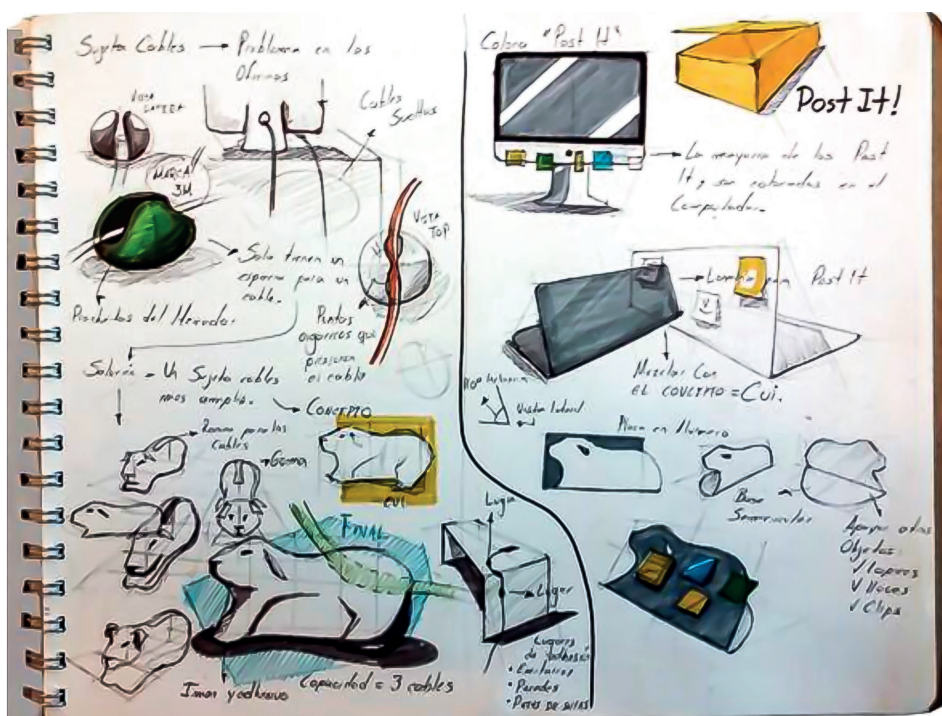 Sujeta Cables → Problema en las
Oficinas
Cables
Sueltos
VISTA
MARCA
3M
VISTA
TOP
Solo tienen un
espacio para un
cable.
Productos del Mercado.
Puntos
organicos que
presionan
el cable
Solución = Un Sujeta cables
mas amplio.
CONCEPTO
Ranura para los
cables
Goma
CUI
FINAL
Iman y adhesivo
Capacidad = 3 cables
Lugar
Lugar
Lugares
de adhesión
• Escritorios
• Paredes
• Patas de sillas
"Post It"
Post It!
La mayoria de los Post
It, son colocadas en el
Computador.
Post It
Mezclar con
EL CONCEPTO = Cui.
110°
Vista lateral
Placa en Aluminio
Base
Semicircular
Apoyar otros
Objetos
√ Lapices
√ llaves
√ Clips